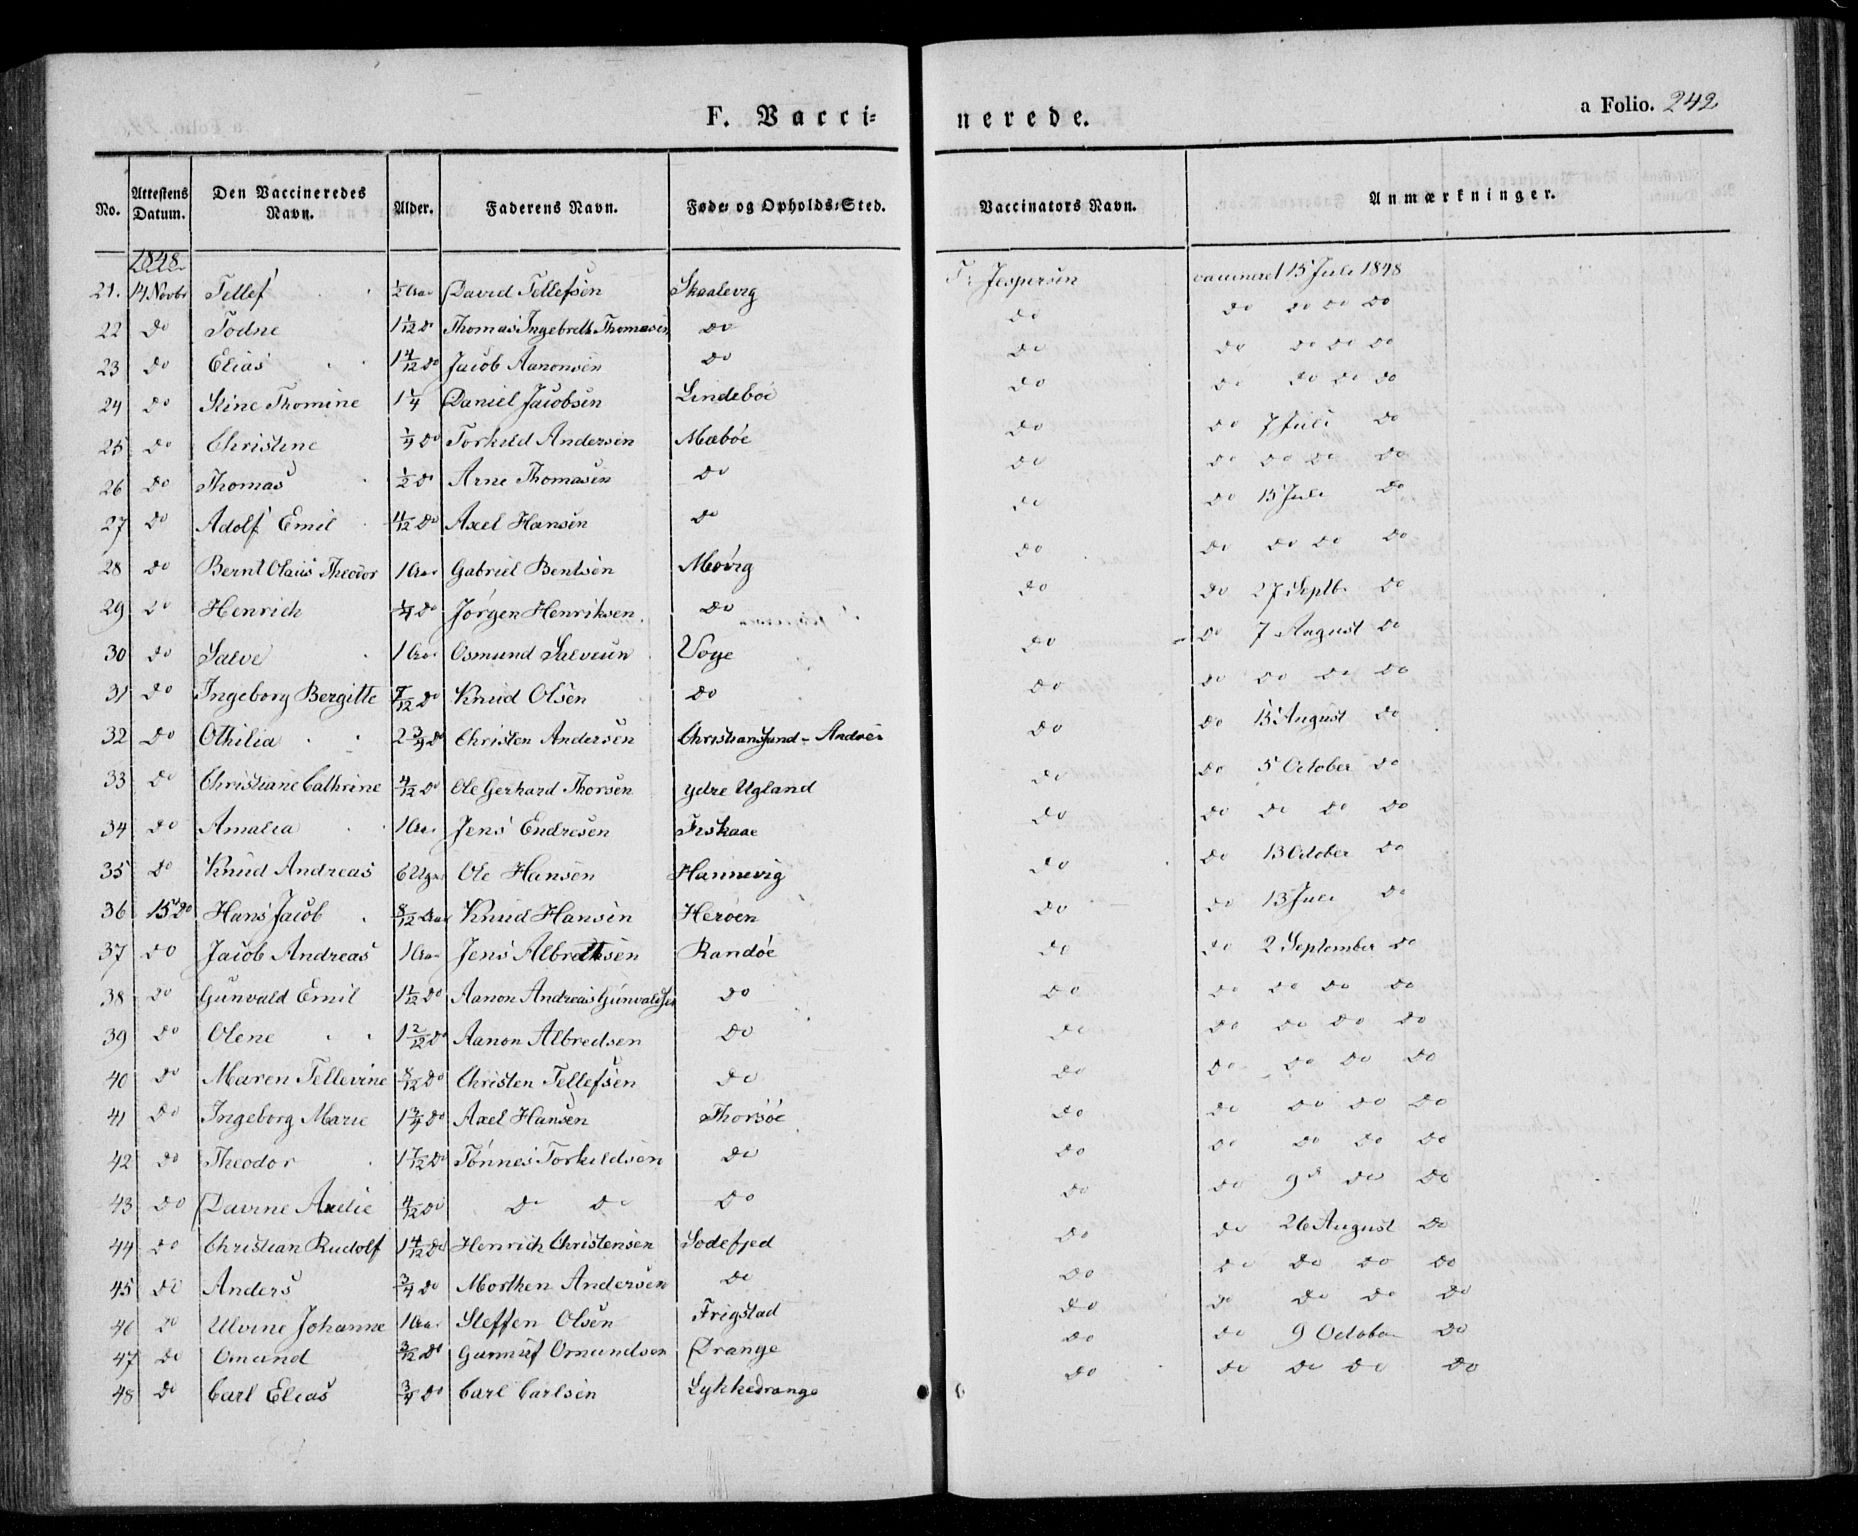 F. Vaccinerede.
a Folio. 242
No. | Attestens Datum. | Den Vaccineredes Navn. | Alder. | Faderens Navn. | Føde- og Opholds-Sted. | Vaccinators Navn. | Anmærkninger.
1848
21. | 14 Novbr | Tellef | 1/2 Aar | David Tellefsen | Skaalevig | F. Jespersen | vaccineret 15 Juli 1848
22 | Do | Todne | 1 1/12 Do | Thomas Ingebreth Thomasen | Do | Do | Do Do Do Do
23 | Do | Elias | 1 4/12 Do | Jacob Aanonsen | Do | Do | Do Do Do Do
24 | Do | Stine Thomine | 1 1/4 | Daniel Jacobsen | Lindeboe | Do | Do Do Do Do
25 | Do | Christine | 1/4 Do | Torkild Andersen | Mæbøe | Do | Do 7 Juli Do
26 | Do | Thomas | 1/2 Do | Arne Thomasen | Do | Do | Do Do Do Do
27 | Do | Adolf Emil | 11/12 Do | Axel Hansen | Do | Do | Do 15 Juli Do
28 | Do | Bernt Olaus Theodor | 1 Aar | Gabriel Bentsen | Møvig | Do | Do Do Do Do
29 | Do | Henrich | 1/4 Do | Jørgen Henriksen | Do | Do | Do 27 Septb. Do
30 | Do | Salve | 1 Aar | Osmund Salvesen | Voge | Do | Do 7 August Do
31 | Do | Ingeborg Bergitte | 7/12 Do | Knud Olsen | Do | Do | Do Do Do Do
32 | Do | Othilia | 2 3/4 Do | Christen Andersen | Christiansund - Andøen | Do | Do 15 August Do
33 | Do | Christiane Cathrine | 4/12 Do | Ole Gerhard Thorsen | ydre Ugland | Do | Do 5 October Do
34 | Do | Amalia | 1 Aar | Jens Endresen | Friskaae | Do | Do Do Do Do
35 | Do | Knud Andreas | 6 Uger | Ole Hansen | Hannevig | Do | Do 13 October Do
36 | 15 Do | Hans Jacob | 8/12 Aar | Knud Hansen | Herøen | Do | Do 13 Juli Do
37 | Do | Jacob Andreas | 1 Aar | Jens Albretsen | Randøe | Do | Do 2 September Do
38 | Do | Gunvald Emil | 1 1/12 Do | Aanon Andreas Gunvaldsen | Do | Do | Do Do Do Do
39 | Do | Olene | 1 2/12 Do | Aanon Albredsen | Do | Do | Do Do Do Do
40 | Do | Maren Tellevine | 8/12 Do | Christen Tellefsen | Do | Do | Do Do Do Do
41 | Do | Ingeborg Marie | 1 3/4 Do | Axel Hansen | Thorsøe | Do | Do Do Do Do
42 | Do | Theodor | 1 7/12 Do | Tønnes Torkildsen | Do | Do | Do Do Do Do
43 | Do | Davine Axelie | 4/12 Do | Do Do | Do | Do | Do 9d Do Do
44 | Do | Christian Rudolf | 1 4/12 Do | Henrich Christensen | Sodefjed | Do | Do 26 August Do
45 | Do | Anders | 3/4 Do | Morthen Andersen | Do | Do | Do Do Do Do
46 | Do | Ulvine Johanne | 1 Aar | Steffen Olsen | Frigstad | Do | Do Do Do Do
47 | Do | Omund | 3/12 Do | Gunnuf Omundsen | Drange | Do | Do 9 October Do
48 | Do | Carl Elias | 3/4 Do | Carl Carlsen | Lykkedrange | Do | Do Do Do Do